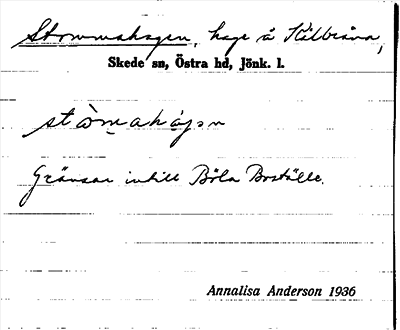 Stommahagen, hage å Källvina,
Skede sn, Östra hd, Jönk. l.
stòmahágən
Gränsar intill Böla Boställe.
Annalisa Anderson 1936